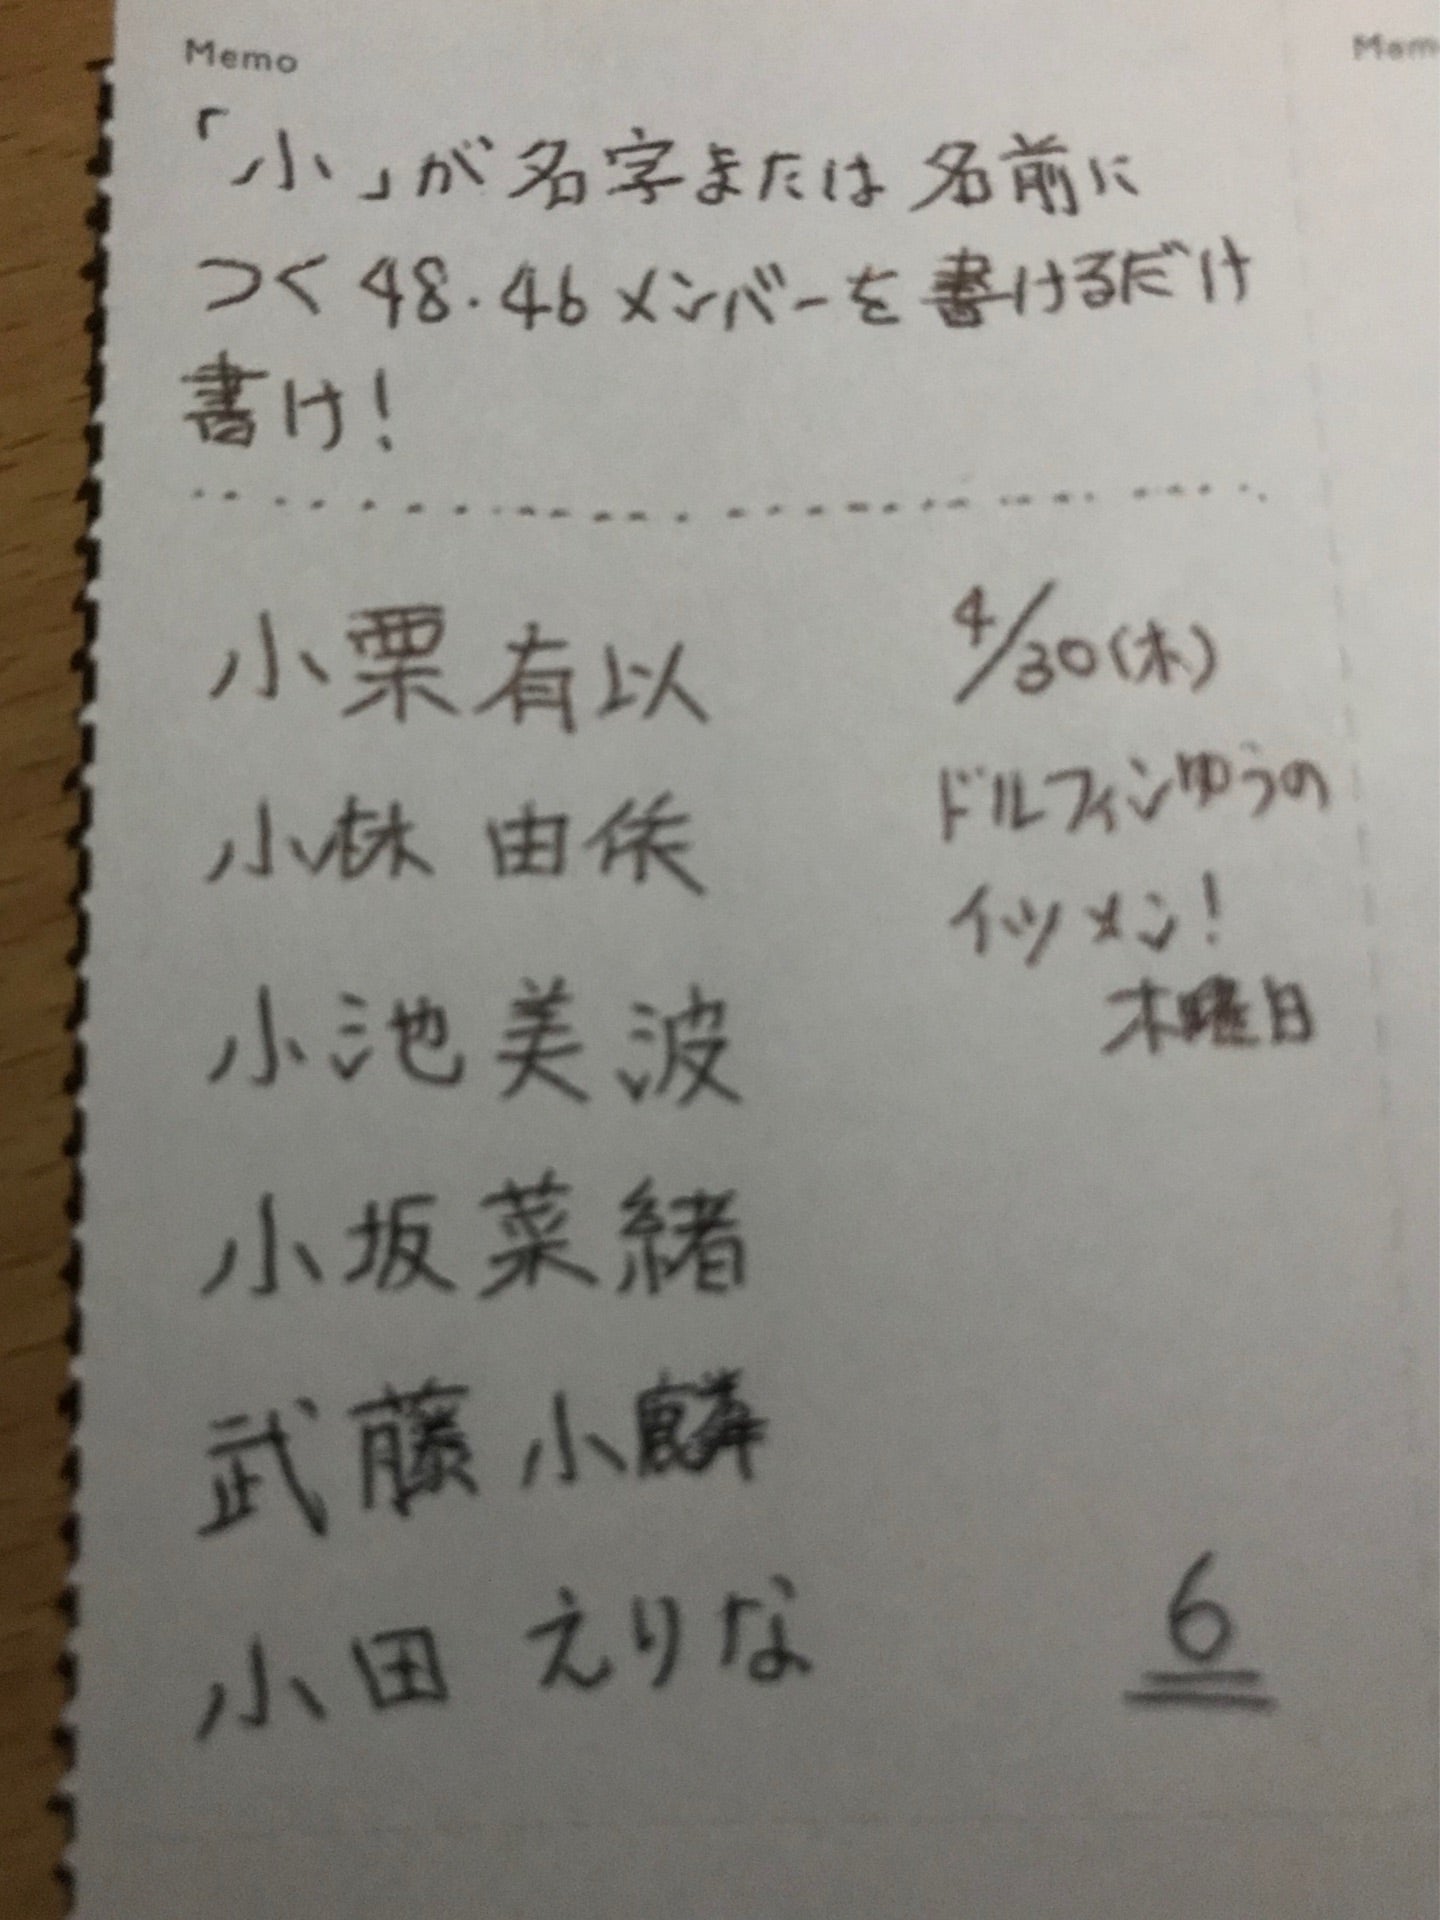 Memo
「小」が名字または名前に
つく48.46メンバーを書けるだけ
書け!
小栗有以
小林由依
小池美波
小坂菜緒
武藤小麟
小田えりな
4/30(木)
ドルフィンゆうの
イツメン!
木曜日
6